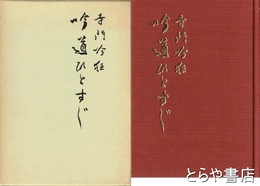 寺門吟狂
吟道ひとすじ
寺門吟狂
吟道ひとすじ
とらや書店